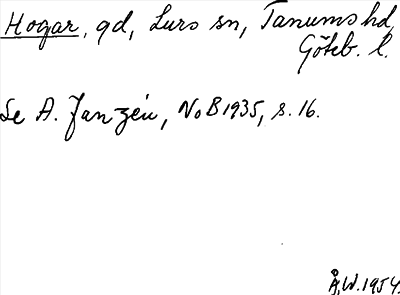 Hogar, gd, Lurs sn, Tanums hd,
Göteb. l.
Se A. Janzén, NoB 1935, s. 16.
Å.W. 1954.